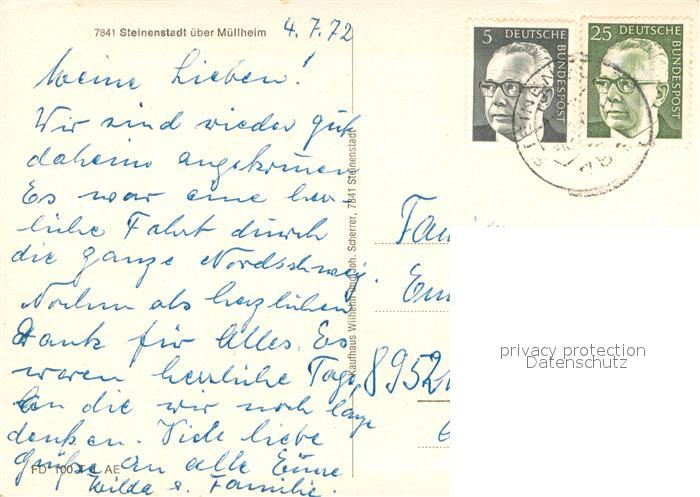 7841 Steinenstadt über Müllheim
4.7.72
Meine Lieben!
Wir sind wieder gut
daheim angekommen
Es war eine herr
liche Fahrt durch
die ganze Nordschweiz.
Nochm als herzlichen
Dank für Alles. Es
waren herrliche Tage,
an die wir noch lange
denken. Viele liebe
Grüße an alle Eure
Hilda u. Familie.
FD 100 AE
Kaufhaus Wilhelm und Joh. Scherrer, 7841 Steinenstadt
5 DEUTSCHE BUNDESPOST
25 DEUTSCHE BUNDESPOST
Fam
Em
8952
privacy protection
Datenschutz